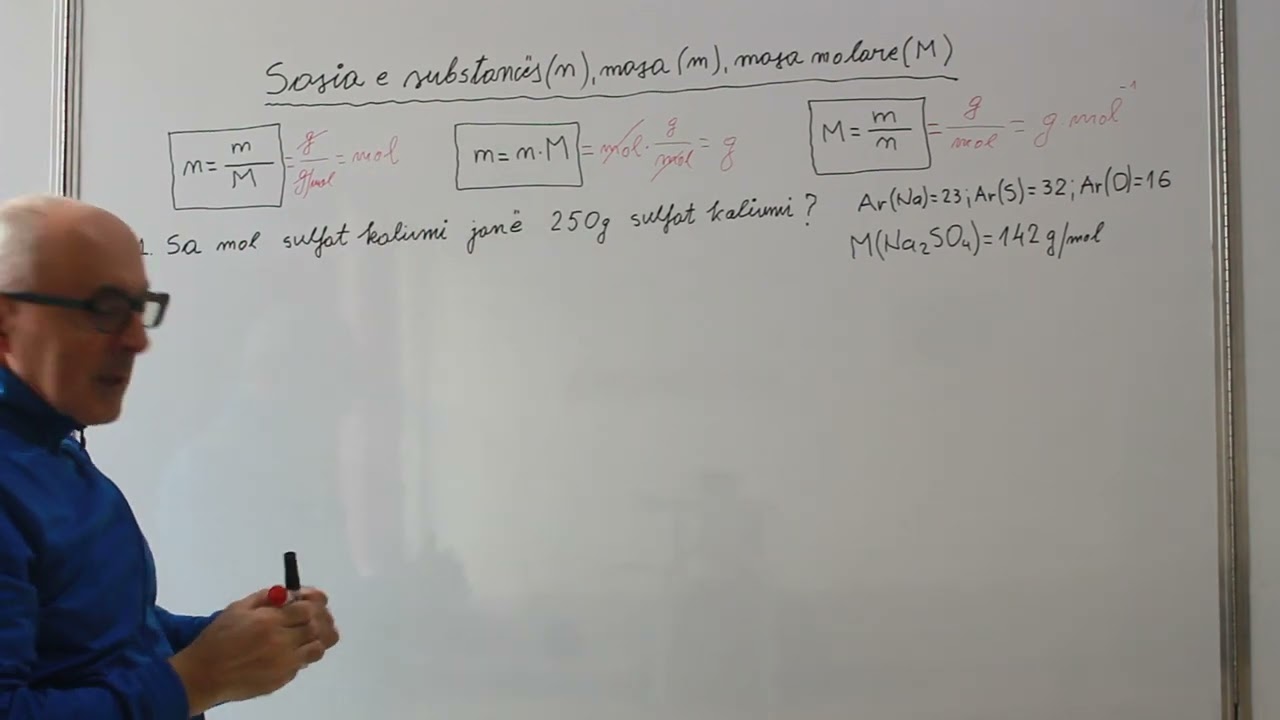 Sasia e substancës(n), masa (m), masa molare (M)
n = m/M = g/g/mol = mol
m = n·M = mol · g/mol = g
M = m/n = g/mol = g mol⁻¹
1. Sa mol sulfat kaliumi janë 250g sulfat kaliumi? Ar(Na)=23; Ar(S)=32; Ar(O)=16
M(Na₂SO₄)=142 g/mol